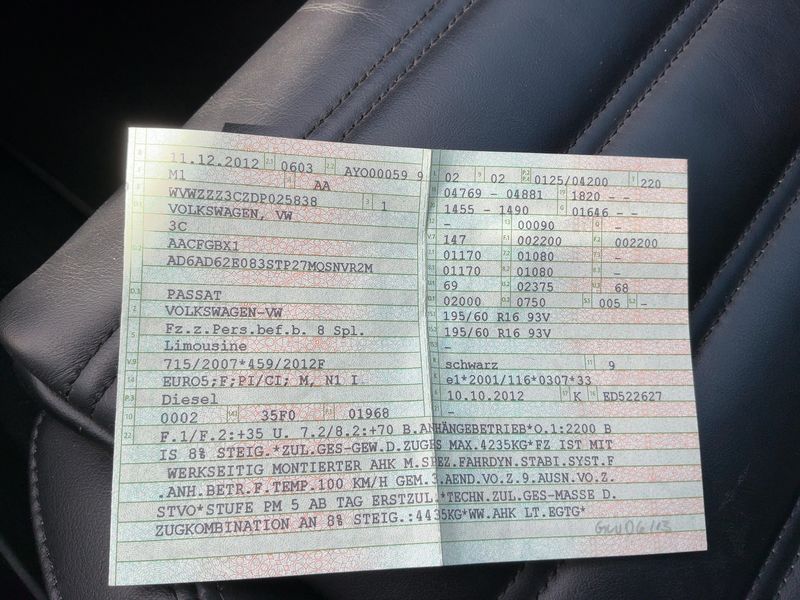 11.12.2012 2.1 0603 2.2 AYO00059 9
M1 AA
WVWZZZ3CZDP025838 3 1
VOLKSWAGEN, VW
3C
AACFGBX1
AD6AD62E083STP27MQSNVR2M
PASSAT
VOLKSWAGEN-VW
Fz.z.Pers.bef.b. 8 Spl.
Limousine
715/2007*459/2012F
EURO5;F;PI/CI; M, N1 I
Diesel
10 0002 35F0 01968
02 9 02 0125/04200 T 220
04769 - 04881 1820 - -
1455 - 1490 01646 - -
- 00090 -
147 002200 002200
01170 01080 -
01170 01080 -
69 02375 68
02000 0750 005 -
195/60 R16 93V
195/60 R16 93V
-
schwarz 11 9
e1*2001/116*0307*33
10.10.2012 17 K 16 ED522627
-
22 F.1/F.2:+35 U. 7.2/8.2:+70 B.ANHÄNGEBETRIEB*O.1:2200 B
IS 8% STEIG.*ZUL.GES-GEW.D.ZUGES MAX.4235KG*FZ IST MIT
WERKSEITIG MONTIERTER AHK M.SPEZ.FAHRDYN.STABI.SYST.F
.ANH.BETR.F.TEMP.100 KM/H GEM.3.AEND.VO.Z.9.AUSN.VO.Z.
STVO*STUFE PM 5 AB TAG ERSTZUL.*TECHN.ZUL.GES-MASSE D.
ZUGKOMBINATION AN 8% STEIG.:4435KG*WW.AHK LT.EGTG*